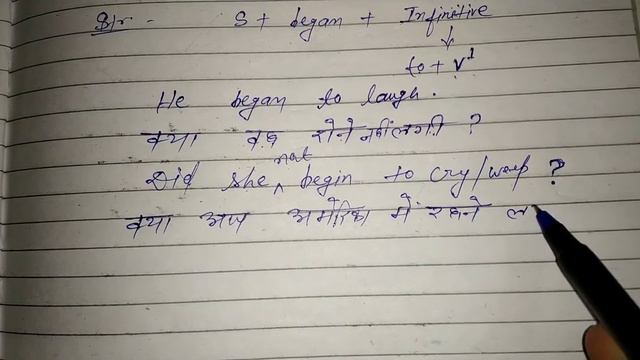 Str - S + began + Infinitive
↓
to + V¹
He began to laugh.
क्या वह रोने नहीं लगी ?
Did she not begin to cry/weep ?
क्या आप अमेरिका में रहने ल